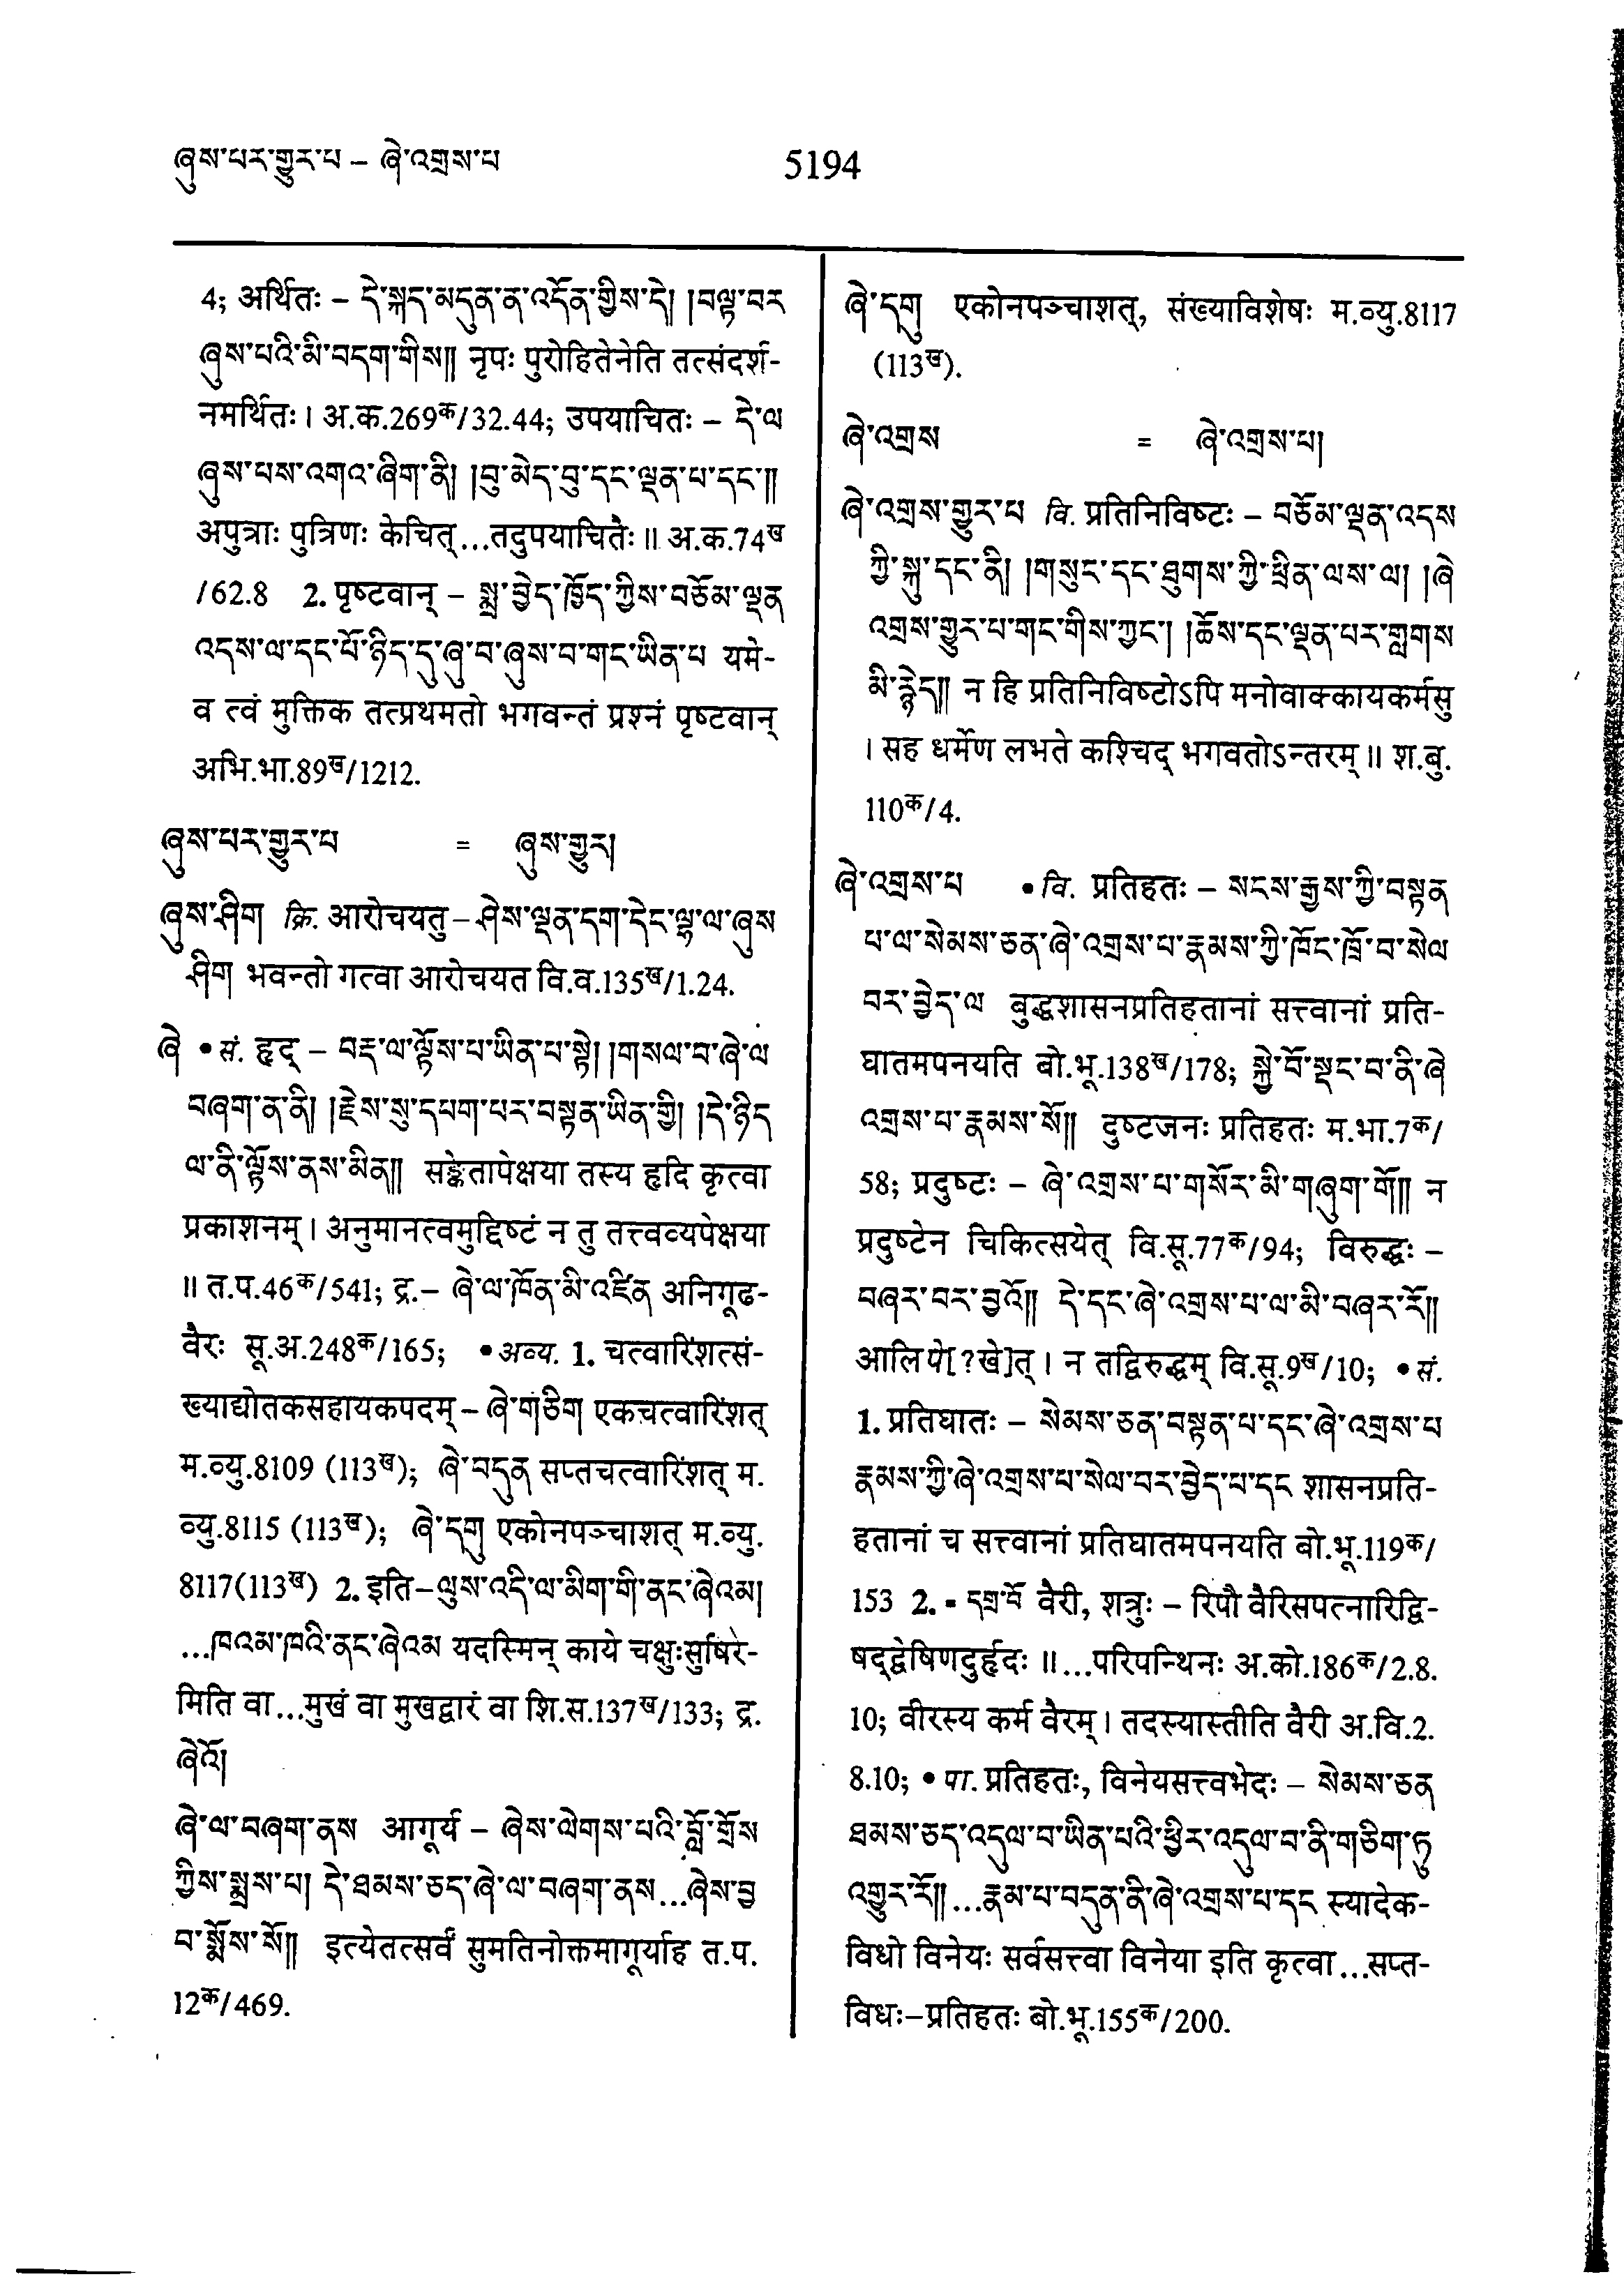 ཞུས་པར་གྱུར་པ – ཞེ་འགྲས་པ
5194
4; अर्थितः – དེ་སྐད་མདུན་ན་འདོན་གྱིས་དེ། །བལྟ་བར
ཞུས་པའི་མི་བདག་གིས།། नृपः पुरोहितेनेति तत्संदर्श-
नमर्थितः। अ.क.269क/32.44; उपयाचितः – དེ་ལ
ཞུས་པས་འགའ་ཞིག་ནི། །བུ་མེད་བུ་དང་ལྡན་པ་དང་།།
अपुत्राः पुत्रिणः केचित्...तदुपयाचितैः॥ अ.क.74ख
/62.8 2. पृष्टवान् – སྨྲ་བྱེད་ཁྱོད་ཀྱིས་བཅོམ་ལྡན
འདས་ལ་དང་པོ་ཉིད་དུ་ཞུ་བ་ཞུས་བ་གང་ཡིན་པ यमे-
व त्वं मुक्तिक तत्प्रथमतो भगवन्तं प्रश्नं पृष्टवान्
अभि.भा.89ख/1212.
ཞུས་པར་གྱུར་པ = ཞུས་གྱུར།
ཞུས་ཤིག क्रि. आरोचयतु – ཤེས་ལྡན་དག་དེང་ལྷ་ལ་ཞུས
ཤིག भवन्तो गत्वा आरोचयत वि.व.135ख/1.24.
ཞེ • सं. हृद् – བརྡ་ལ་ལྟོས་པ་ཡིན་པ་སྟེ། །གསལ་བ་ཞེ་ལ
བཞག་ན་ནི། །རྗེས་སུ་དཔག་པར་བསྟན་ཡིན་གྱི། །དེ་ཉིད
ལ་ནི་ལྟོས་ནས་མིན།། सङ्केतापेक्षया तस्य हृदि कृत्वा
प्रकाशनम्। अनुमानत्वमुद्दिष्टं न तु तत्त्वव्यपेक्षया
॥ त.प.46क/541; द्र.– ཞེ་ལ་ཁོན་མི་འཛིན अनिगूढ-
वैरः सू.अ.248क/165; • अव्य. 1. चत्वारिंशत्सं-
ख्याद्योतकसहायकपदम् – ཞེ་གཅིག एकचत्वारिंशत्
म.व्यु.8109 (113ख); ཞེ་བདུན सप्तचत्वारिंशत् म.
व्यु.8115 (113ख); ཞེ་དགུ एकोनपञ्चाशत् म.व्यु.
8117(113ख) 2. इति–ལུས་འདི་ལ་མིག་གི་ནང་ཞེའམ།
...ཁའམ་ཁའི་ནང་ཞེའམ यदस्मिन् काये चक्षुःसुषिरे-
मिति वा...मुखं वा मुखद्वारं वा शि.स.137ख/133; द्र.
ཞེའོ།
ཞེ་ལ་བཞག་ནས आगूर्य – ཞེས་ལེགས་པའི་བློ་གྲོས
ཀྱིས་སྨྲས་པ། དེ་ཐམས་ཅད་ཞེ་ལ་བཞག་ནས...ཞེས་བྱ
བ་སྨོས་སོ།། इत्येतत्सर्वं सुमतिनोक्तमागूर्याह त.प.
12क/469.
ཞེ་དགུ एकोनपञ्चाशत्, संख्याविशेषः म.व्यु.8117
(113ख).
ཞེ་འགྲས = ཞེ་འགྲས་པ།
ཞེ་འགྲས་གྱུར་པ वि. प्रतिनिविष्टः – བཅོམ་ལྡན་འདས
ཀྱི་སྐུ་དང་ནི། །གསུང་དང་ཐུགས་ཀྱི་ཕྲིན་ལས་ལ། །ཞེ
འགྲས་གྱུར་པ་གང་གིས་ཀྱང་། །ཆོས་དང་ལྡན་པར་གླགས
མི་རྙེད།། न हि प्रतिनिविष्टोऽपि मनोवाक्कायकर्मसु
। सह धर्मेण लभते कश्चिद् भगवतोऽन्तरम्॥ श.बु.
110क/4.
ཞེ་འགྲས་པ • वि. प्रतिहतः – སངས་རྒྱས་ཀྱི་བསྟན
པ་ལ་སེམས་ཅན་ཞེ་འགྲས་པ་རྣམས་ཀྱི་ཁོང་ཁྲོ་བ་སེལ
བར་བྱེད་ལ बुद्धशासनप्रतिहतानां सत्त्वानां प्रति-
घातमपनयति बो.भू.138ख/178; སྐྱེ་བོ་སྡང་བ་ནི་ཞེ
འགྲས་པ་རྣམས་སོ།། दुष्टजनः प्रतिहतः म.भा.7क/
58; प्रदुष्टः – ཞེ་འགྲས་པ་གསོར་མི་གཞུག་གོ།། न
प्रदुष्टेन चिकित्सयेत् वि.सू.77क/94; विरुद्धः –
བཞར་བར་བྱའོ།། དེ་དང་ཞེ་འགྲས་པ་ལ་མི་བཞར་རོ།།
आलिपे[?खे]त्। न तद्विरुद्धम् वि.सू.9ख/10; • सं.
1. प्रतिघातः – སེམས་ཅན་བསྟན་པ་དང་ཞེ་འགྲས་པ
རྣམས་ཀྱི་ཞེ་འགྲས་པ་སེལ་བར་བྱེད་པ་དང शासनप्रति-
हतानां च सत्त्वानां प्रतिघातमपनयति बो.भू.119क/
153 2. ▪ དགྲ་བོ वैरी, शत्रुः – रिपौ वैरिसपत्नारिद्वि-
षद्द्वेषिणदुर्हृदः॥...परिपन्थिनः अ.को.186क/2.8.
10; वीरस्य कर्म वैरम्। तदस्यास्तीति वैरी अ.वि.2.
8.10; • पा. प्रतिहतः, विनेयसत्त्वभेदः – སེམས་ཅན
ཐམས་ཅད་འདུལ་བ་ཡིན་པའི་ཕྱིར་འདུལ་བ་ནི་གཅིག་ཏུ
འགྱུར་རོ།།...རྣམ་པ་བདུན་ནི་ཞེ་འགྲས་པ་དང स्यादेक-
विधो विनेयः सर्वसत्त्वा विनेया इति कृत्वा...सप्त-
विधः–प्रतिहतः बो.भू.155क/200.